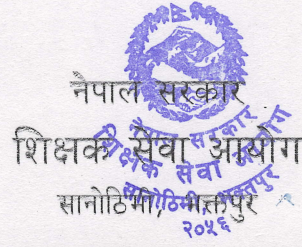 नेपाल सरकार
शिक्षक सेवा आयोग
सानोठिमी, भक्तपुर
नेपाल सरकार
शिक्षक सेवा आयोग
सानोठिमी, भक्तपुर
२०५६